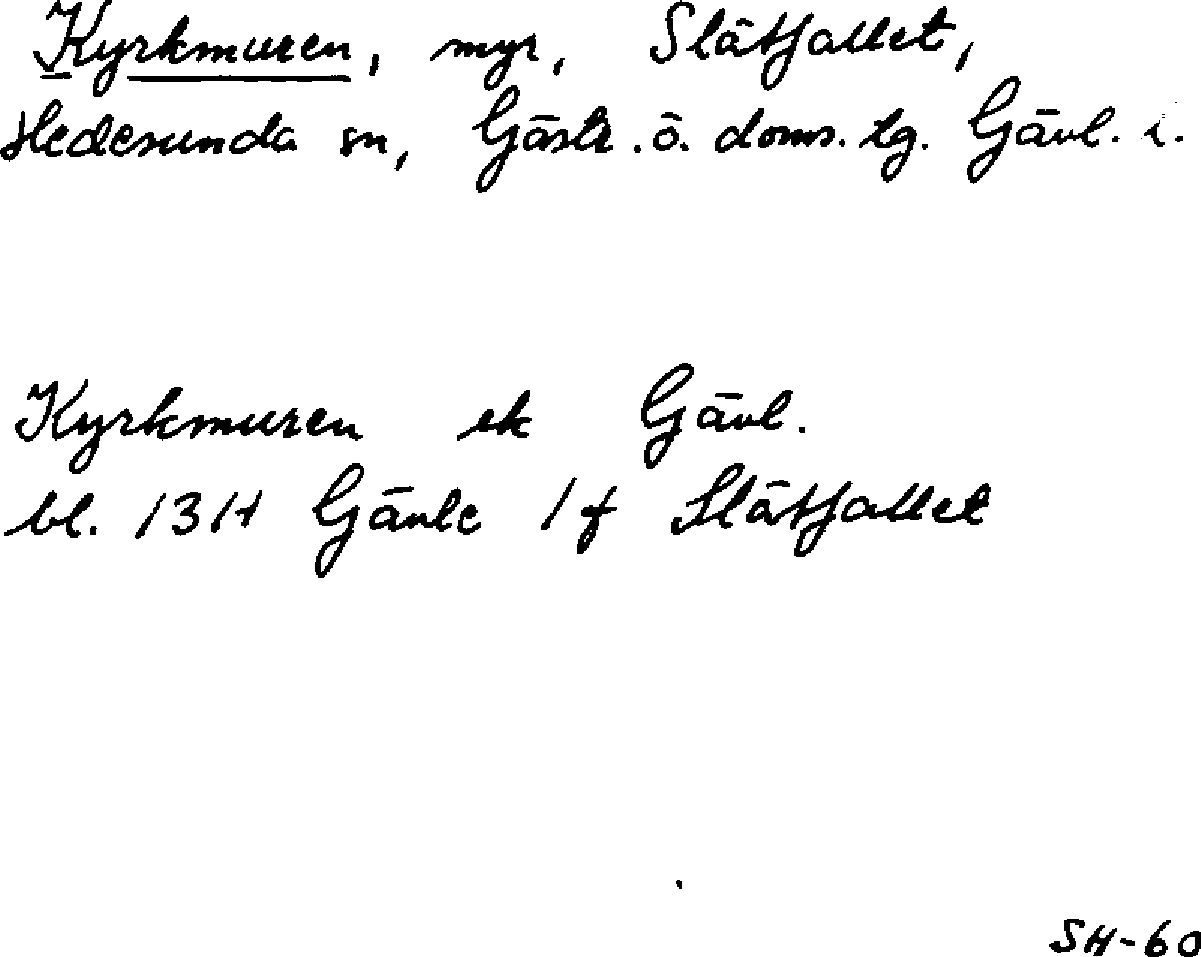 Kyrkmuren, myr, Slätfallet,
Hedesunda sn, Gästr. ö. doms. tg. Gävl. l.
Kyrkmuren ek Gävl.
bl. 13H Gävle 1f Slätfallet
SH-60